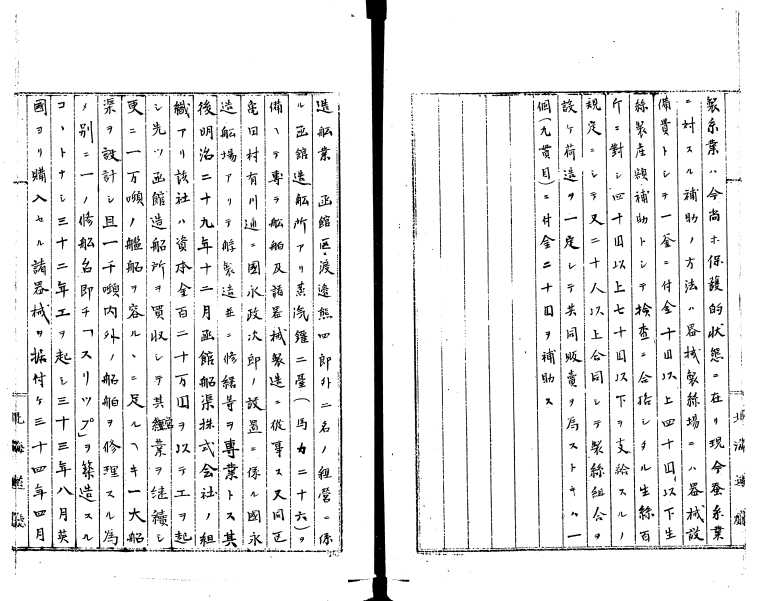 製糸業ハ今尚ホ保護的状態ニ在リ現今蚕糸業
ニ対スル補助ノ方法ハ器械製絲場ニハ器械設
備費トシテ一釜ニ付金十円以上四十円以下生
絲製産額補助トシテ検査ニ合格シタル生絲百
斤ニ対シ四十円以上七十円以下ヲ支給スルノ
規定ニシテ又二十人以上合同シテ製絲組合ヲ
設ケ荷造ヲ一定シテ共同販賣ヲ為ストキハ一
個(九貫目)ニ付金二十円ヲ補助ス
造船業 函館区渡邉熊四郎外二名ノ組営ニ係
ル函館造船所アリ蒸汽鑵二臺(馬力二十六)ヲ
備ヘテ専ラ船舶及諸器械製造ニ従事ス又同区
亀田村有川通ニ國永政次郎ノ設置ニ係ル國永
造船場アリテ艀製造並ニ修繕等ヲ専業トス其
後明治二十九年十二月函館船渠株式会社ノ組
織アリ該社ハ資本金百二十万円ヲ以テ工ヲ起
シ先ツ函館造船所ヲ買収シテ其営業ヲ継續シ
更ニ一万噸ノ艦船ヲ容ルヽニ足ルヘキ一大船
渠ヲ設計シ且一千噸内外ノ船舶ヲ修理スル為
メ別ニ一ノ修船台即チ「スリップ」ヲ築造スル
コトトナシ三十二年工ヲ起シ三十三年八月英
國ヨリ購入セル諸器械ヲ据付ケ三十四年四月